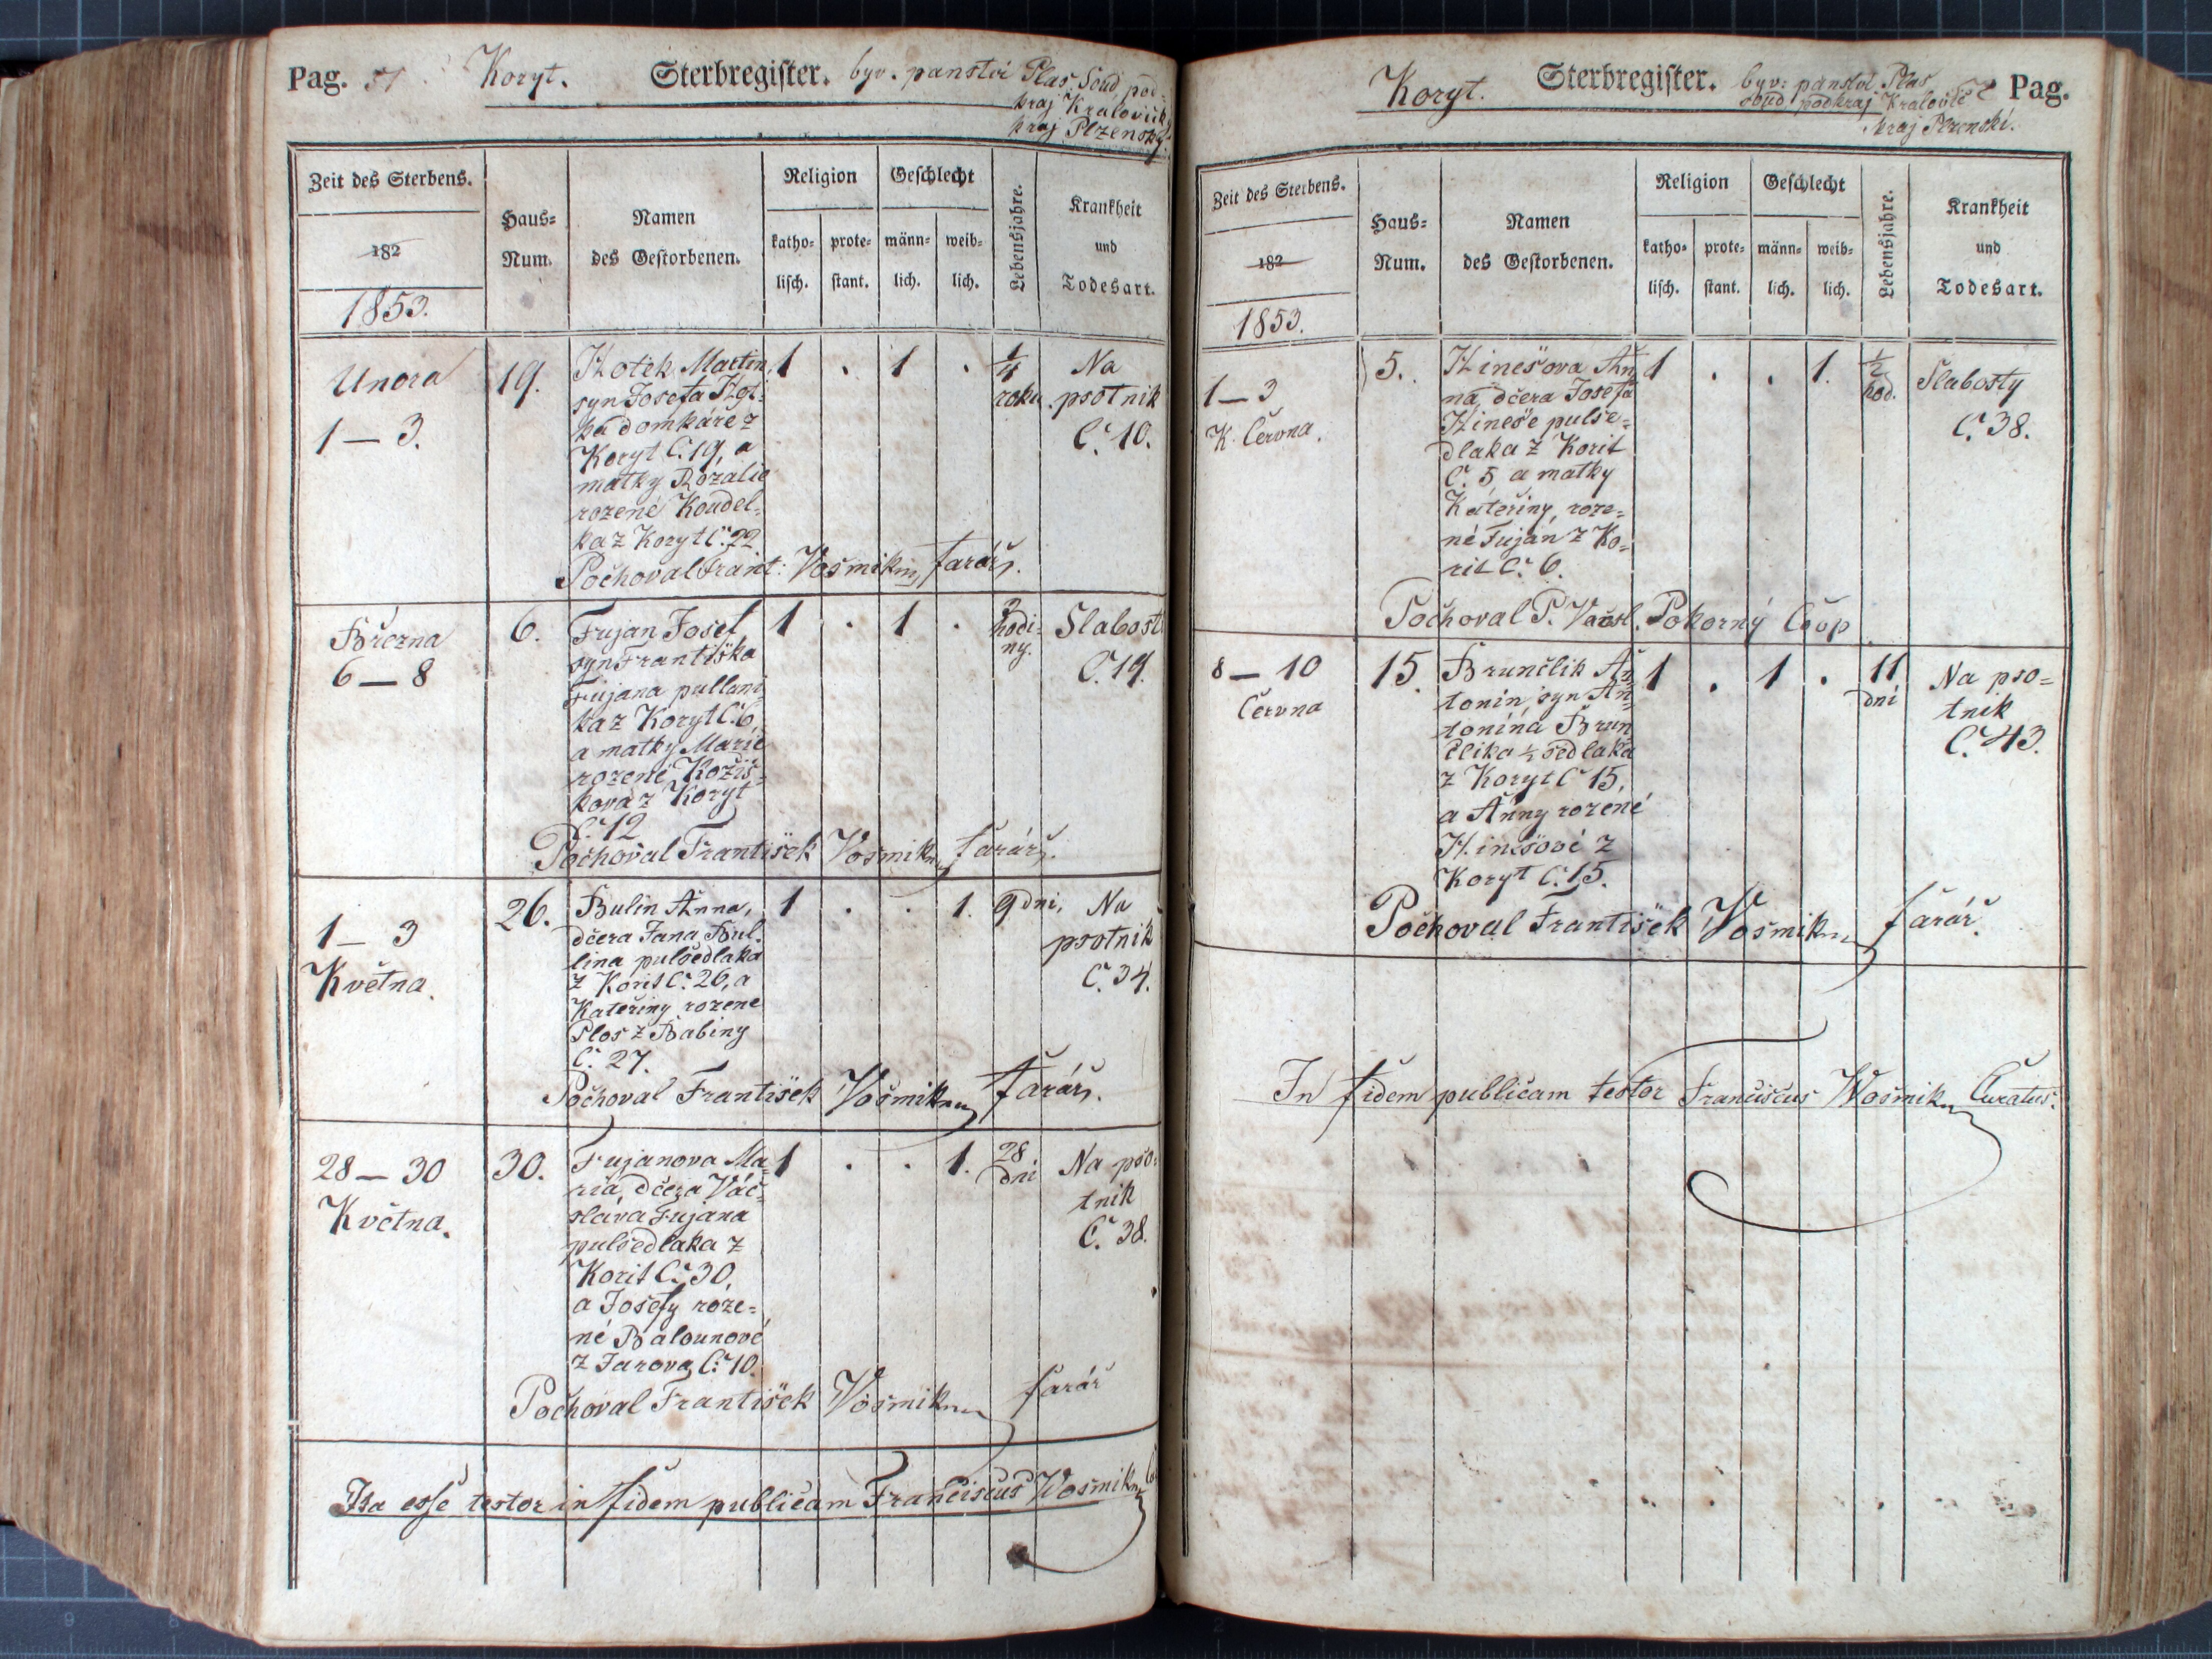 Pag. 51. Koryt. Sterbregister. byv. panství Plas. Soud pod-
kraj Kralovick
kraj Plzenský.
Zeit des Sterbens.
182
1853.
Haus-
Num.
Namen
des Gestorbenen.
Religion
katho-
lisch.
prote-
stant.
Geschlecht
männ-
lich.
weib-
lich.
Lebensjahre.
Krankheit
und
Todesart.
Unora
1 — 3.
19.
Kotek Martin,
syn Josefa Kot-
ka domkáře z
Koryt Č. 19, a
matky Rozalie
rozené Koudel-
ka z Koryt Č. 22.
1 . 1 .
1/4
roku.
Na
psotnik
Č. 10.
Pochoval Frant: Vošmik farář.
Března
6 — 8
6.
Fujan Josef,
syn Františka
Fujana pullaní-
ka z Koryt Č. 6,
a matky Marie
rozené Kožíš-
kova z Koryt
Č. 12
1 . 1 .
3
hodi-
ny.
Slabosti
Č. 19.
Pochoval František Vošmik farář.
1 — 3
Května.
26.
Bulin Anna,
dčera Jana Bul-
lina pulsedlaka
z Korit Č. 26, a
Kateřiny rozene
Plos z Babiny
Č. 27.
1 . . 1.
9 dni,
Na
psotnik
Č. 34.
Pochoval František Vošmik farář.
28 — 30
Května.
30.
Fujanova Ma-
ria, dčera Vác-
slava Fujana
pulsedlaka z
Korit Č. 30,
a Josefy roze-
né Balounové
z Jarova Č. 10.
1 . . 1.
28
dní
Na pso-
tnik
Č. 38.
Pochoval František Vošmik farář
Ita esse testor in fidem publicam Franciscus Wošmik
Koryt. Sterbregister. byv: panství Plas 52 Pag.
soud podkraj Kralovic
kraj Plzenski.
Zeit des Sterbens.
182
1853.
Haus-
Num.
Namen
des Gestorbenen.
Religion
katho-
lisch.
prote-
stant.
Geschlecht
männ-
lich.
weib-
lich.
Lebensjahre.
Krankheit
und
Todesart.
1 — 3
K. Června.
5.
Hinešova An-
na, dčera Josefa
Hineše pulse-
dlaka z Korit
Č. 5, a matky
Kateřiny, roze-
né Fujan z Ko-
rit Č. 6.
1 . . 1.
1/2
hod.
Slabosty
Č. 38.
Pochoval P. Vacsl. Pokorný Coop
8 — 10
Června
15.
Brunclik An-
tonin, syn An-
tonína Brun
clika 1/2 sedlaka
z Koryt Č 15,
a Anny rozené
Hinešové z
Koryt Č. 15.
1 . 1 .
11
dní
Na pso-
tnik
Č. 43.
Pochoval František Vošmik farář.
In fidem publicam testor Franciscus Wošmik Curatus.